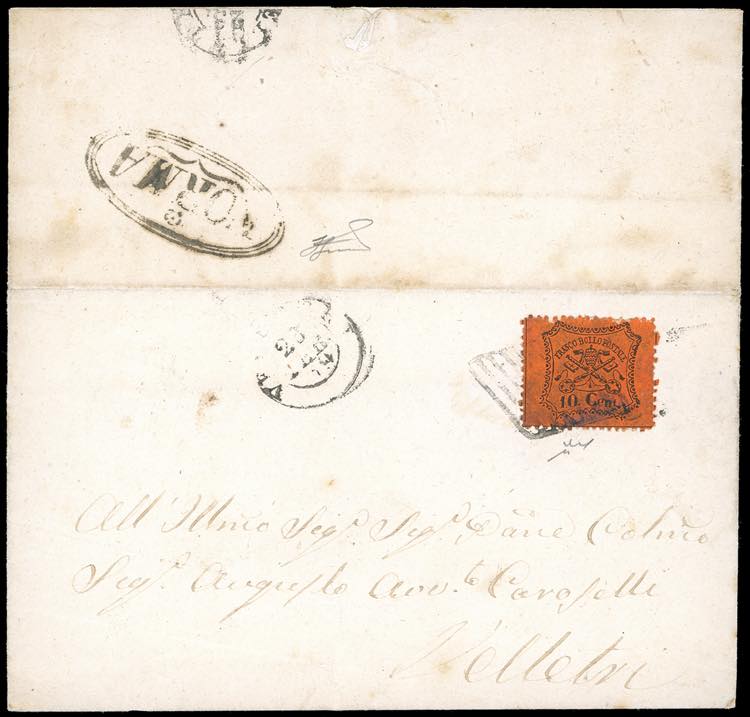 NORMA
FRANCO BOLLO POSTALE
10 Cent.
All' Illmo Sigr. Sigr. Pãne Colmo
Sigr. Augusto Avv.to Caroselli
Velletri